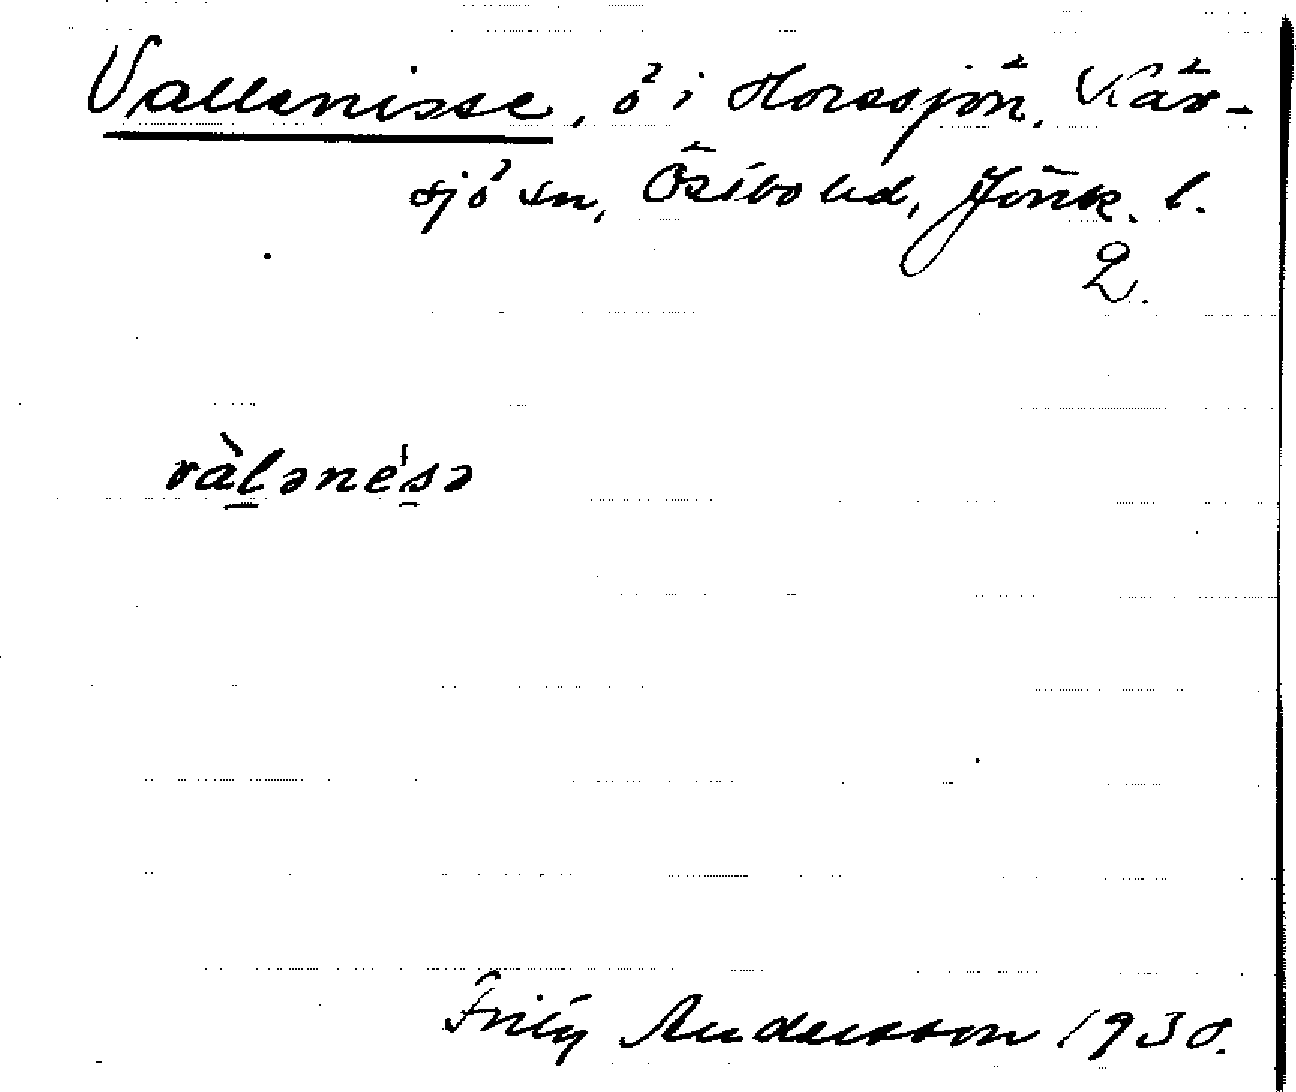 Vallenisse, ö i Horssjön, Kär-
sjö sn, Östbo hd, Jönk. l.
2.
vàlənésə
Fritz Andersson 1930.